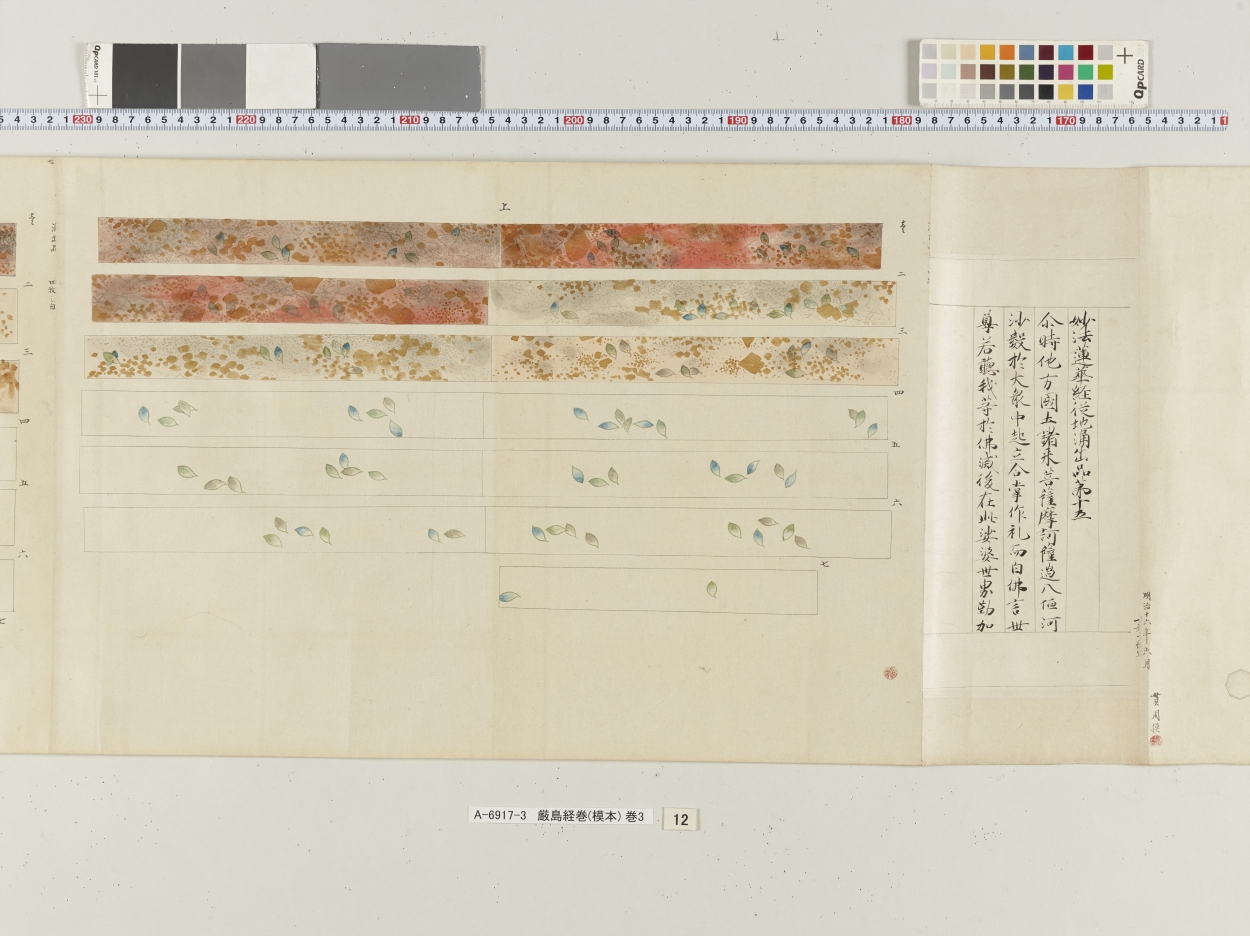 妙法蓮華経従地涌出品第十五
尒時他方國土諸来菩薩摩訶薩過八恒河
沙數於大衆中起立合掌作礼而白佛言世
尊若聽我等於佛滅後在此娑婆世界勤加
明治十六年六月
貫周摸
上
壱
二
三
四
五
六
七
壱
二
三
四
五
六
七
A-6917-3 厳島経巻(模本) 巻3
12
QpCARD
QpCARD 101
5 4 3 2 1 230 9 8 7 6 5 4 3 2 1 220 9 8 7 6 5 4 3 2 1 210 9 8 7 6 5 4 3 2 1 200 9 8 7 6 5 4 3 2 1 190 9 8 7 6 5 4 3 2 1 180 9 8 7 6 5 4 3 2 1 170 9 8 7 6 5 4 3 2 1 1